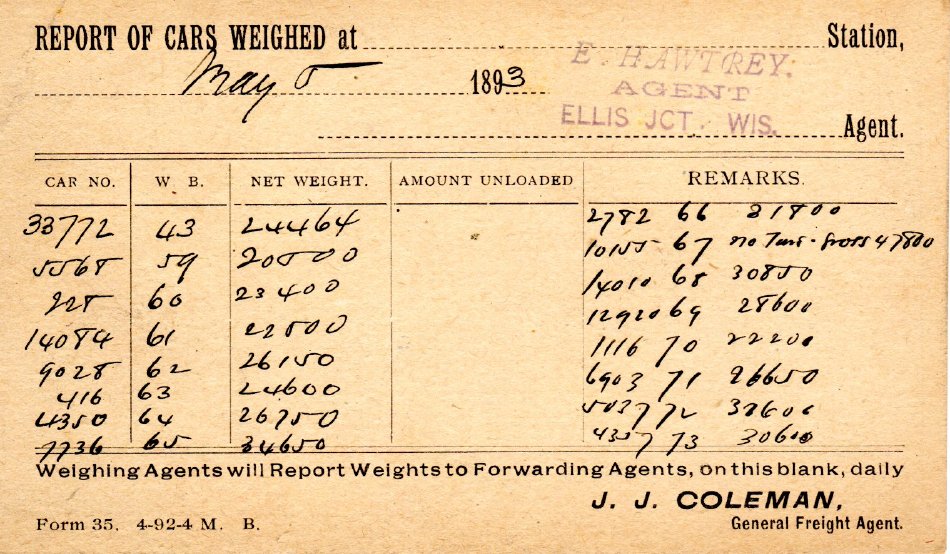 REPORT OF CARS WEIGHED at Station,
E. HAWTREY.
May 5 1893
AGENT
ELLIS JCT. WIS.
Agent.
CAR NO. W. B. NET WEIGHT. AMOUNT UNLOADED REMARKS.
33772 43 24464 2782 66 31800
5568 59 20500 10155 67 no Tare - Gross 47800
228 60 23400 14010 68 30850
14084 61 22500 12920 69 28600
9028 62 26150 1116 70 22200
416 63 24600 6903 71 26650
4350 64 26750 5037 72
7736 65 34650 4357 73 30600
Weighing Agents will Report Weights to Forwarding Agents, on this blank, daily
J. J. COLEMAN,
Form 35. 4-92-4 M. B. General Freight Agent.